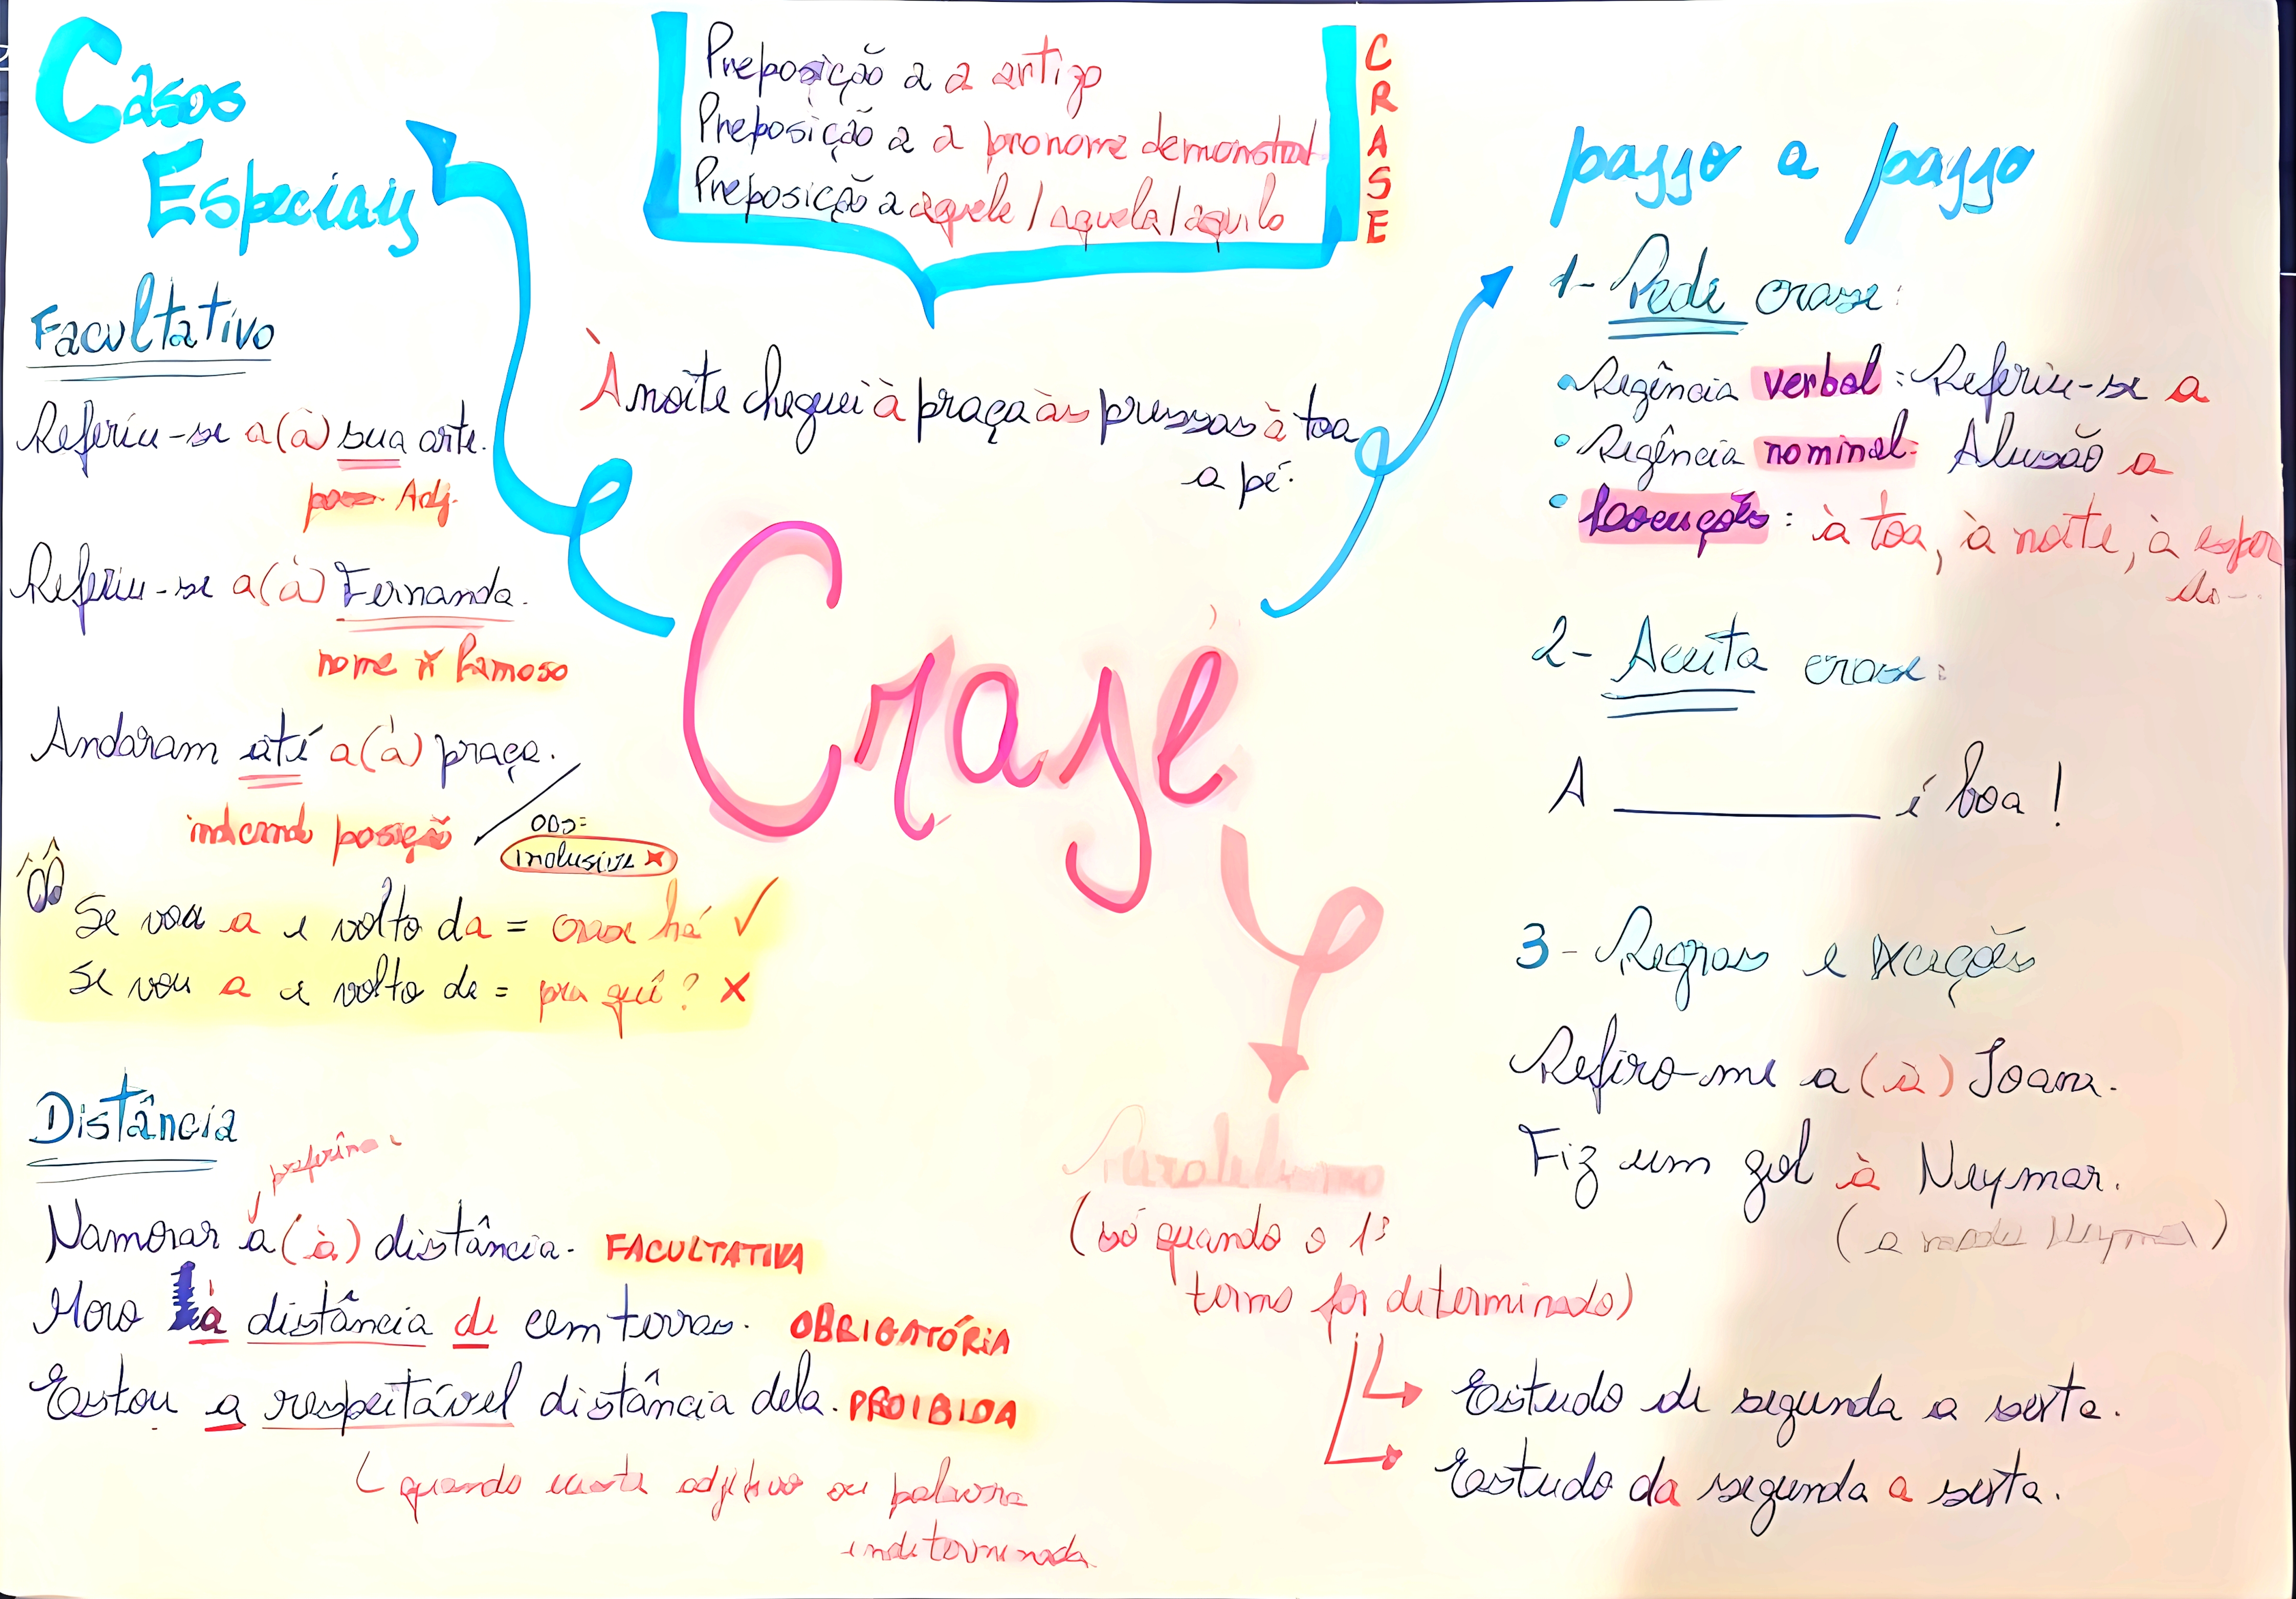 Casos
Especiais
Facultativo
Referiu-se a(à) sua arte.
poss. Adj.
Referiu-se a(à) Fernanda.
nome x famoso
Andaram até a(à) praça.
indicando posição
OBS:
inclusive x
Se vou a e volto da = crase há ✓
Se vou a e volto de = pra quê? x
Distância
Namorar a(à) distância. FACULTATIVA
Moro à distância de cem terras. OBRIGATÓRIA
Estou a respeitável distância dela. PROIBIDA
(quando
adjetivo ou palavra
indeterminada
Preposição a a artigo
Preposição a a pronome demonstrat
Preposição a aquele / aquela / aquilo
CRASE
À noite cheguei à praça às pressas à toa
a pé.
Crase
Paralelismo
(só quando o 1º
termo for determinado)
Estudo de segunda a sexta.
Estudo da segunda a sexta.
passo a passo
1- Pede crase:
Regência verbal: Referiu-se a
Regência nominal: Alusão a
Locuções: à toa, à noite, à espera
2- Aceita crase:
A ______ é boa!
3- Regras e exceções
Refiro-me a (à) Joana.
Fiz um gol à Neymar.
(a moda Neymar)